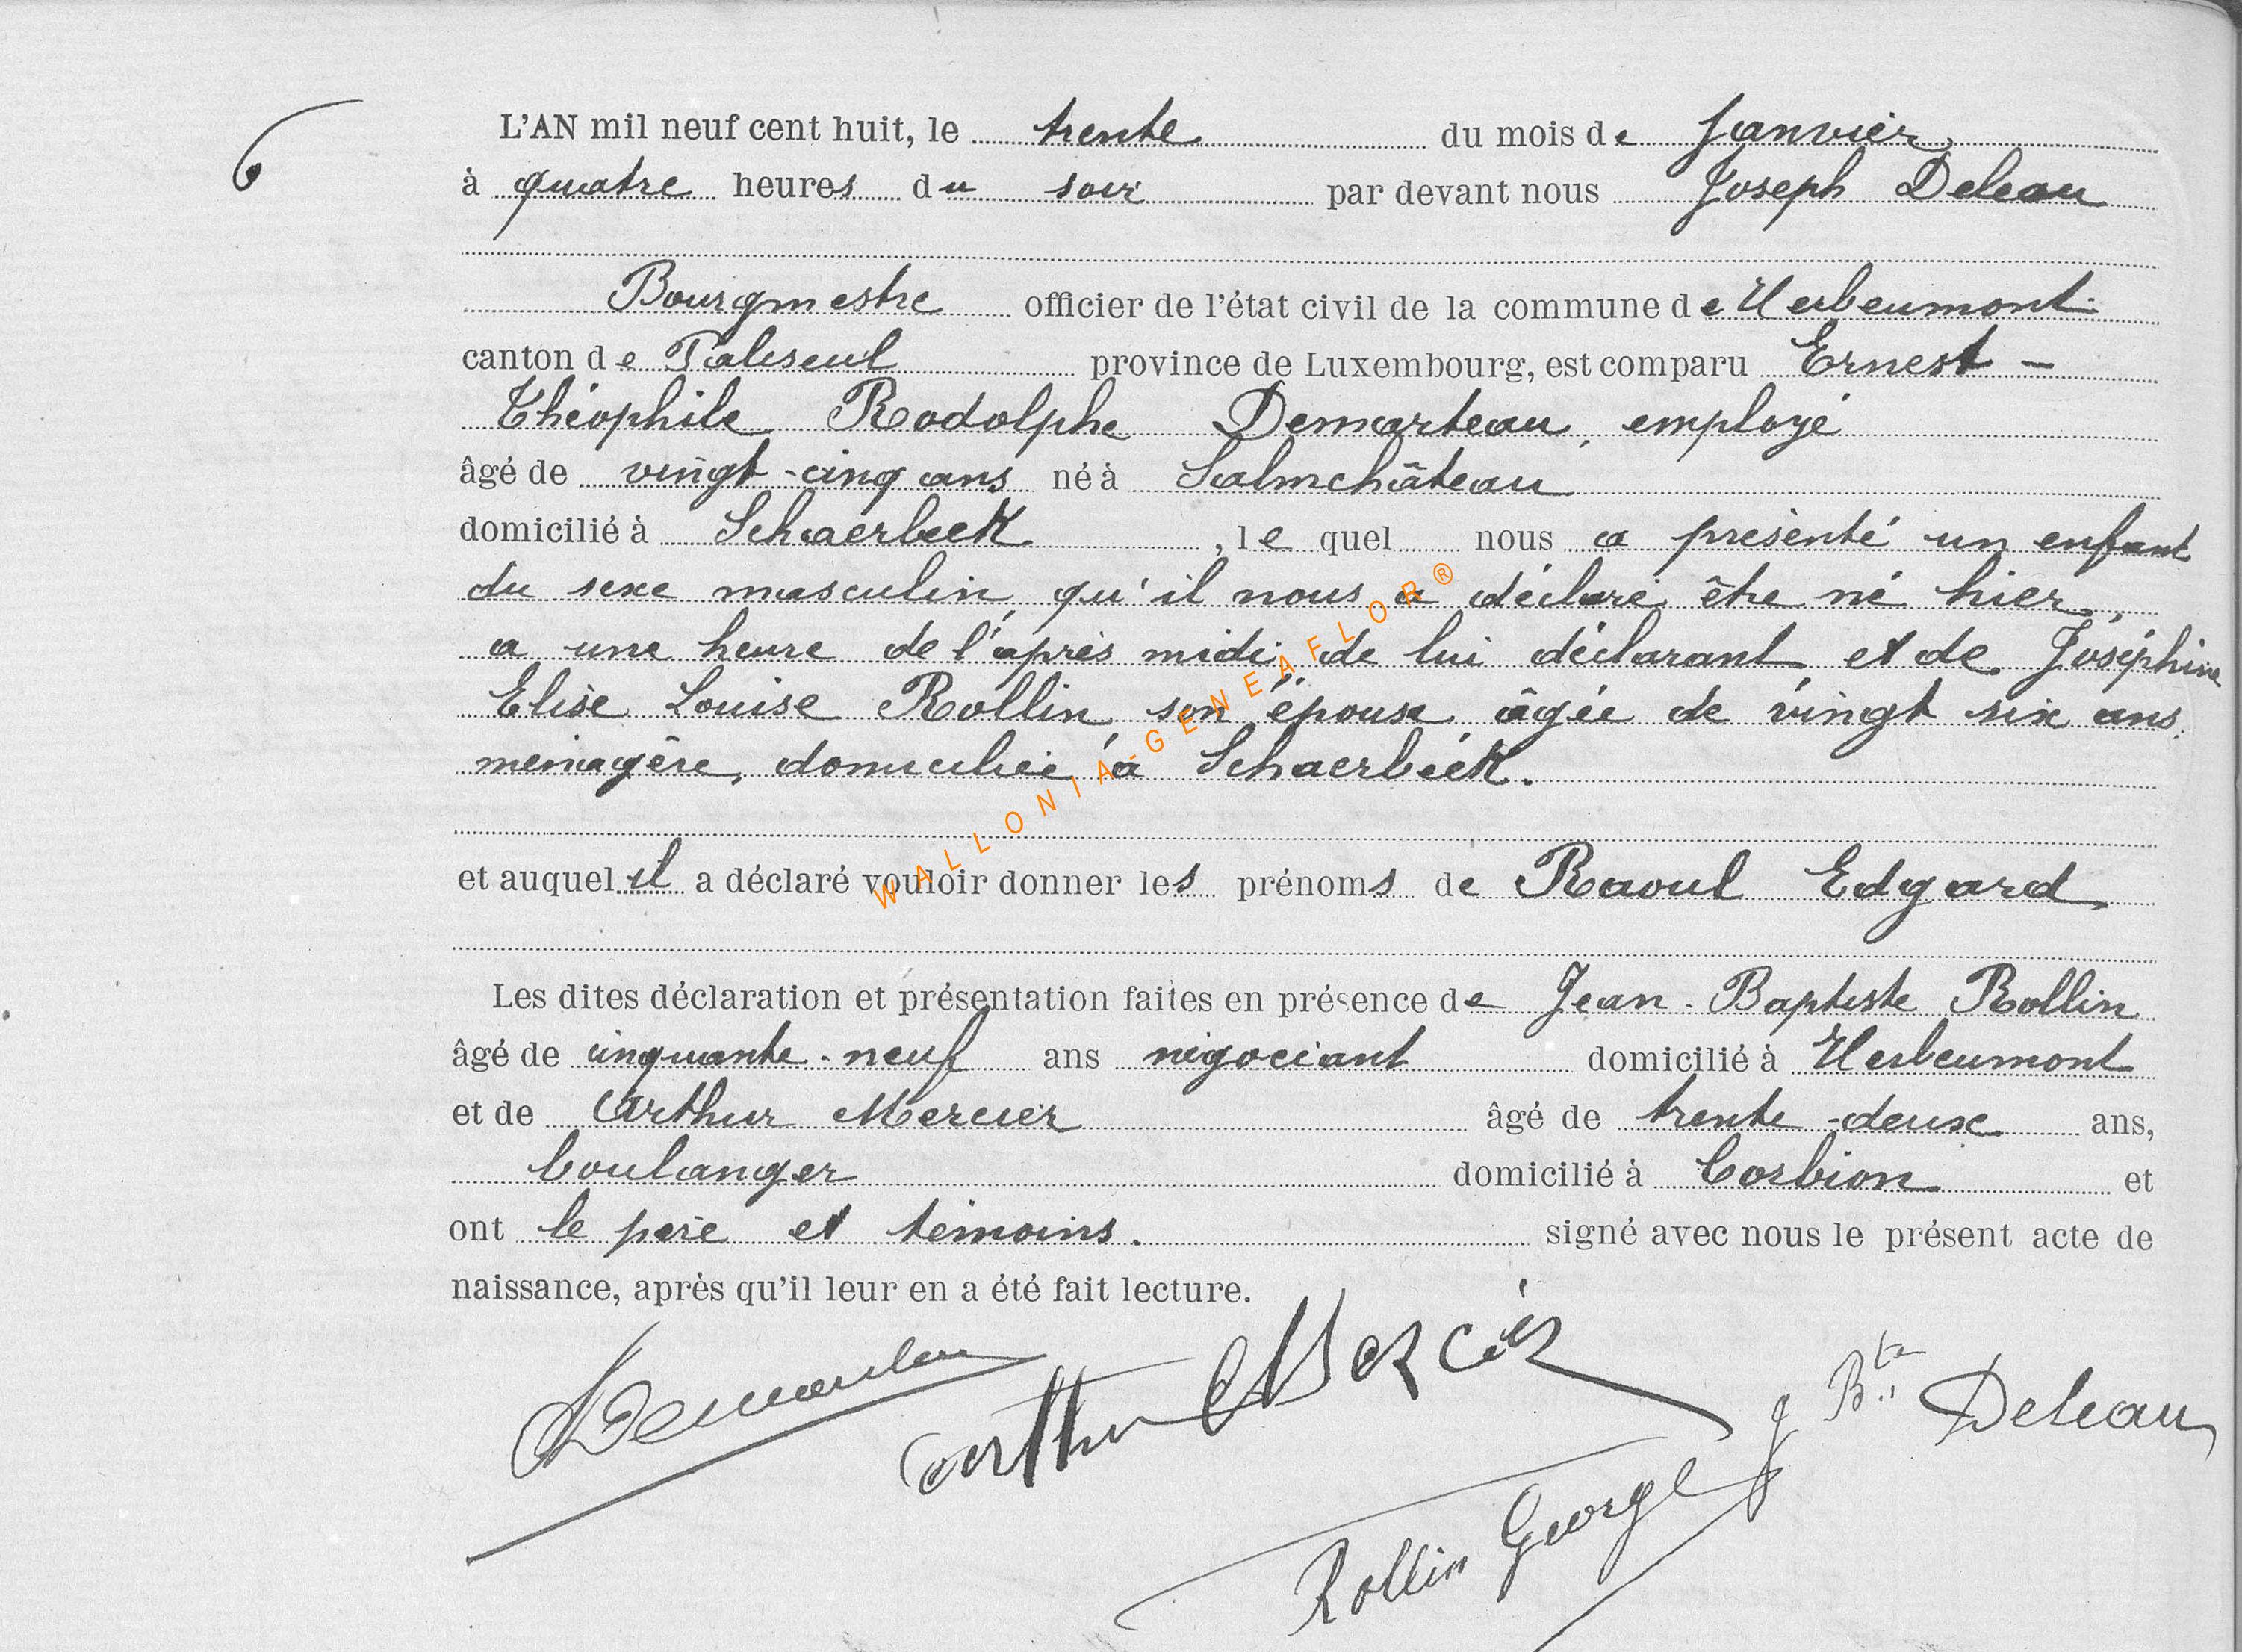 6
L'AN mil neuf cent huit, le trente du mois de Janvier
à quatre heures du soir par devant nous Joseph Deleau
Bourgmestre officier de l'état civil de la commune de Herbeumont
canton de Paliseul province de Luxembourg, est comparu Ernest -
Théophile Rodolphe Demarteau, employé
âgé de vingt-cinq ans né à Salmchâteau
domicilié à Schaerbeek, le quel nous a présenté un enfant
du sexe masculin, qu'il nous a déclaré être né hier,
a une heure de l'après midi, de lui déclarant et de Joséphine
Elise Louise Rollin, son épouse âgée de vingt six ans,
ménagère, domiciliée à Schaerbeek.
et auquel il a déclaré vouloir donner les prénoms de Raoul Edgard
Les dites déclaration et présentation faites en présence de Jean-Baptiste Rollin
âgé de cinquante-neuf ans négociant domicilié à Herbeumont
et de Arthur Mercier âgé de trente-deux ans,
boulanger domicilié à Corbion et
ont le père et témoins. signé avec nous le présent acte de
naissance, après qu'il leur en a été fait lecture.
Demarteau
Arthur Mercier
J Bte Deleau
Rollin George
WALLONIA-GENEAFLOR®